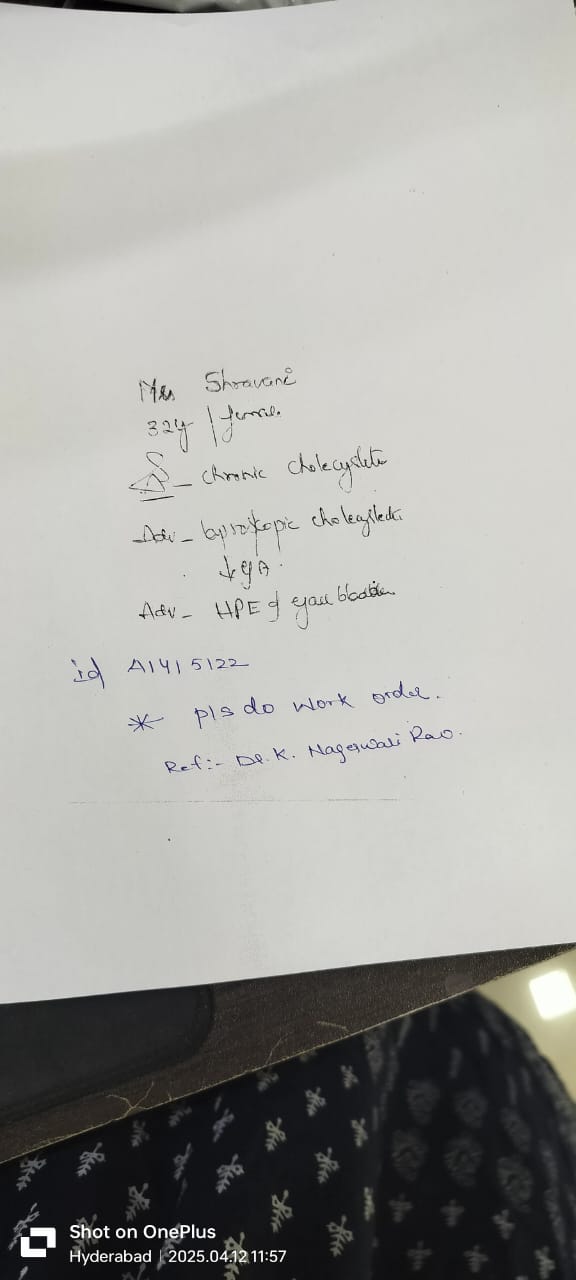 Mrs Shravani
32y / female
Δ - chronic cholecystitis
Adv - laproskopic cholecystect
↓ GA.
Adv - HPE of gall bladder
id A1415122
* pls do work order.
Ref:- Dr. K. Nageswari Rao.
Shot on OnePlus
Hyderabad | 2025.04.12 11:57